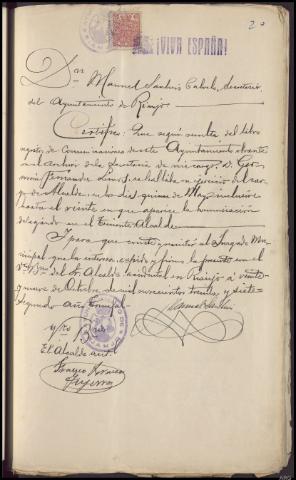 2º
¡VIVA ESPAÑA!
Don Manuel Calvelo, Secretario
del Ayuntamiento de Rianjo
Certifico: Que según resulta del libro
registro de Comunicaciones de este Ayuntamiento obrante
en el archivo de la Secretaría de mi cargo, D.
Fernández se hallaba en ejercicio del car-
go de Alcalde en los días quince de Mayo inclusive
hasta el veinte en que aparece la comunicación
delegando en el Teniente Alcalde.
Y para que conste y remitir al Juzgado Mu-
nicipal que la interesa, expido y firmo la presente con el
Vº Bº del Sr. Alcalde accidental en Rianjo a veinti-
nueve de Octubre de mil novecientos treinta y siete-
Segundo Año Triunfal-
Vº Bº
El Alcalde acctal.